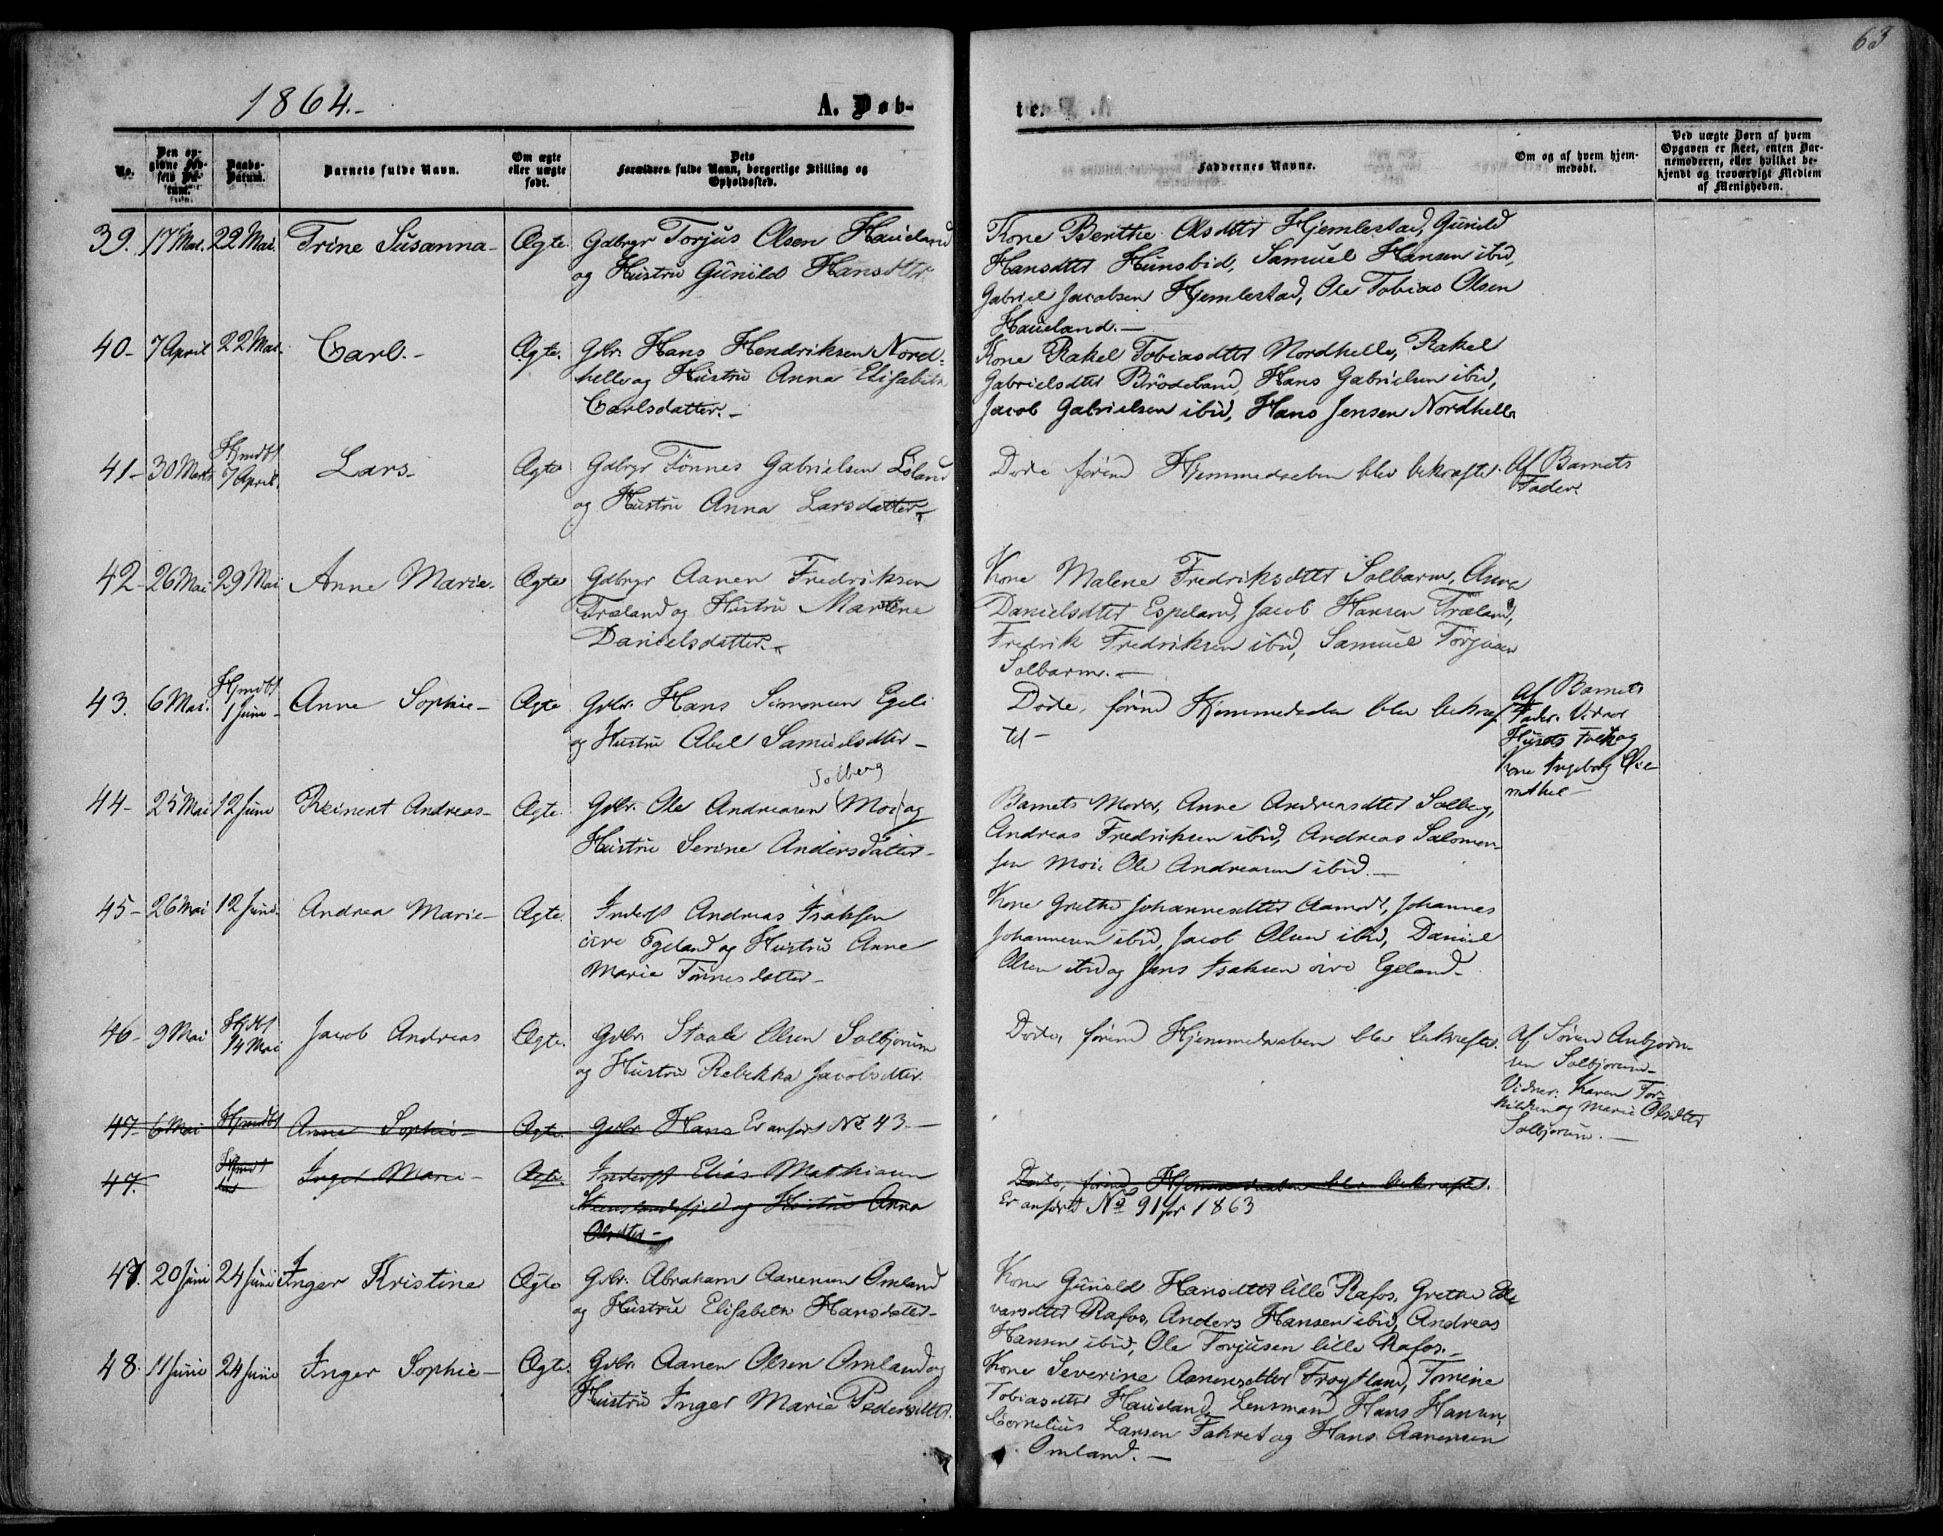 63
1864.-
A. Døb-
te.
No.
Den op-
givne Fød-
sels Da-
tum.
Daabs-
Datum.
Barnets fulde Navn.
Om ægte
eller uægte
født.
Dets
Forældres fulde Navn, borgerlige Stilling og
Opholdssted.
Faddernes Navne.
Om og af hvem hjem-
medøbt.
Ved uægte Børn af hvem
Opgaven er skeet, enten Bar-
nemoderen, eller hvilket be-
kjendt og troværdigt Medlem
af Menigheden.
39. 17 Mai. 22 Mai. Trine Susanna- Ægte. Gdbrgr Torjus Olsen Haueland
og Hustru Gunild Hansdtter.
Kone Berthe Olsdtter Hjemlestad, Gunild
Hansdtter Hunsbid, Samuel Hansen ibid,
Gabriel Jacobsen Hjemlestad, Ole Tobias Olsen
Haueland.-
40- 7 April 22 Mai. Carl.- Ægte. Gdbr. Hans Hendriksen Nord-
helle og Hustru Anna Elisabeth
Carlsdatter.-
Kone Rakel Tobiasdtter Nordhelle, Rakel
Gabrielsdtter Brödeland, Hans Gabrielsen ibid,
Jacob Gabrielsen ibid, Hans Jensen Nordhelle
41- 30 Marts Hjmdbt 7 April. Lars- Ægte Gdbrgr Tönnes Gabrielsen Löland
og Hustru Anna Larsdatter.
Döde förend Hjemmedaaben blev bekræftet.
Af Barnets
Fader.
42- 26 Mai 29 Mai Anne Marie. Ægte Gdbrgr Aanen Fredriksen
Træland og Hustru Martine
Danielsdatter.-
Kone Malene Fredriksdtter Solbarm, Anne
Danielsdtter Espeland, Jacob Hansen Træland,
Fredrik Fredriksen ibid, Samuel Törjusen
Solbarm.-
43. 6 Mai. Hjmdbt 1 Juni- Anne Sophie- Ægte Gdbr. Hans Simonsen Egeli
og Hustru Abel Samuelsdtter-
Döde, förend Hjemmedaaben blev bekræf
tet-
Af Barnets
Fader. Vidner
Husets Folk og
Kone Ingeborg
44- 25 Mai 12 Juni Reinert Andreas- Ægte. Gdbr. Ole Andreasen (Moi) og
Solberg
Hustru Serine Andersdatter-
Barnets Moder, Anne Andreasdtter Solberg,
Andreas Fredriksen ibid, Andreas Salomon-
sen Moi, Ole Andreasen ibid.-
45- 26 Mai 12 Juni. Andrea Marie- Ægte. Inderst Andreas Isaksen
övre Egeland og Hustru Anne
Marie Tönnesdatter-
Kone Grethe Johannesdtter Aamodt, Johannes
Johannesen ibid, Jacob Olsen ibid, Daniel
Olsen ibid og Jens Isaksen övre Egeland-
46- 9 Mai Hjdbt 14 Mai Jacob Andreas Ægte. Gdbr. Staale Ellsen Solbjorum
og Hustru Rebekka Jacobsdtter.
Döde, förend Hjemmedaaben blev bekræftet.
Af Sören Anbjörn-
sen Solbjorum-
Vidner: Karen Tor-
kildsen og Marie Olsdtter
Solbjorum.-
47- 6 Mai Hjmdbt Anne Sophie- Ægte. Gdbr. Hans Er anfört No 43.-
47. Inger Marie- Ægte. Inderst Elias Mathiasen
og Hustru Anna
Olsdtter-
Döde, förend Hjemmedaaben blev bekræftet.
Er anfört No 91 for 1863
47. 20 Juni 24 Juni Inger Kristine Ægte Gdbr. Abraham Aanensen Omland
og Hustru Elisabeth Hansdatter-
Kone Gunild Hansdtter lille Rafos, Grethe Ed-
vardsdtter Rafos, Anders Hansen ibid, Andreas
Hansen ibid, Ole Torjusen lille Rafos.-
48. 11 Juni 24 Juni Inger Sophie- Ægte. Gdbr. Aanen Olsen Omland og
Hustru Inger Marie Pedersdtter.
Kone Severine Aanensdtter Fröytland, Tomine
Tobiasdtter Haueland, Lensmand Hans Hansen,
Cornelius Larsen Fahret og Hans Aanensen
Omland.-